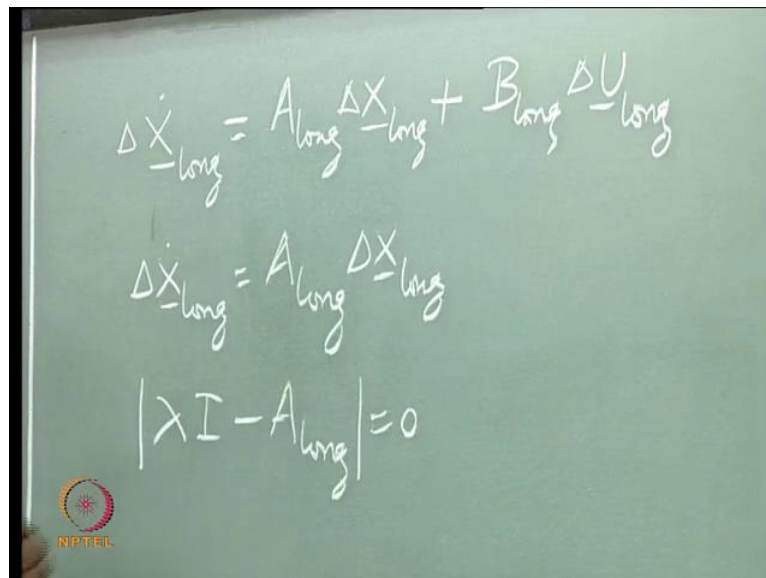 ΔẊ_long = A_long ΔX_long + B_long ΔU_long
ΔẊ_long = A_long ΔX_long
|λI - A_long| = 0
NPTEL